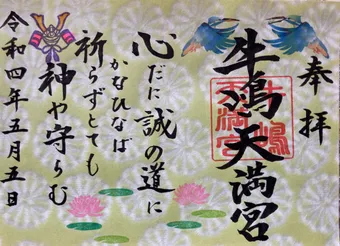 奉拝
牛嶋天満宮
心だに誠の道に
かなひなば
祈らずとても
神や守らむ
令和四年五月五日